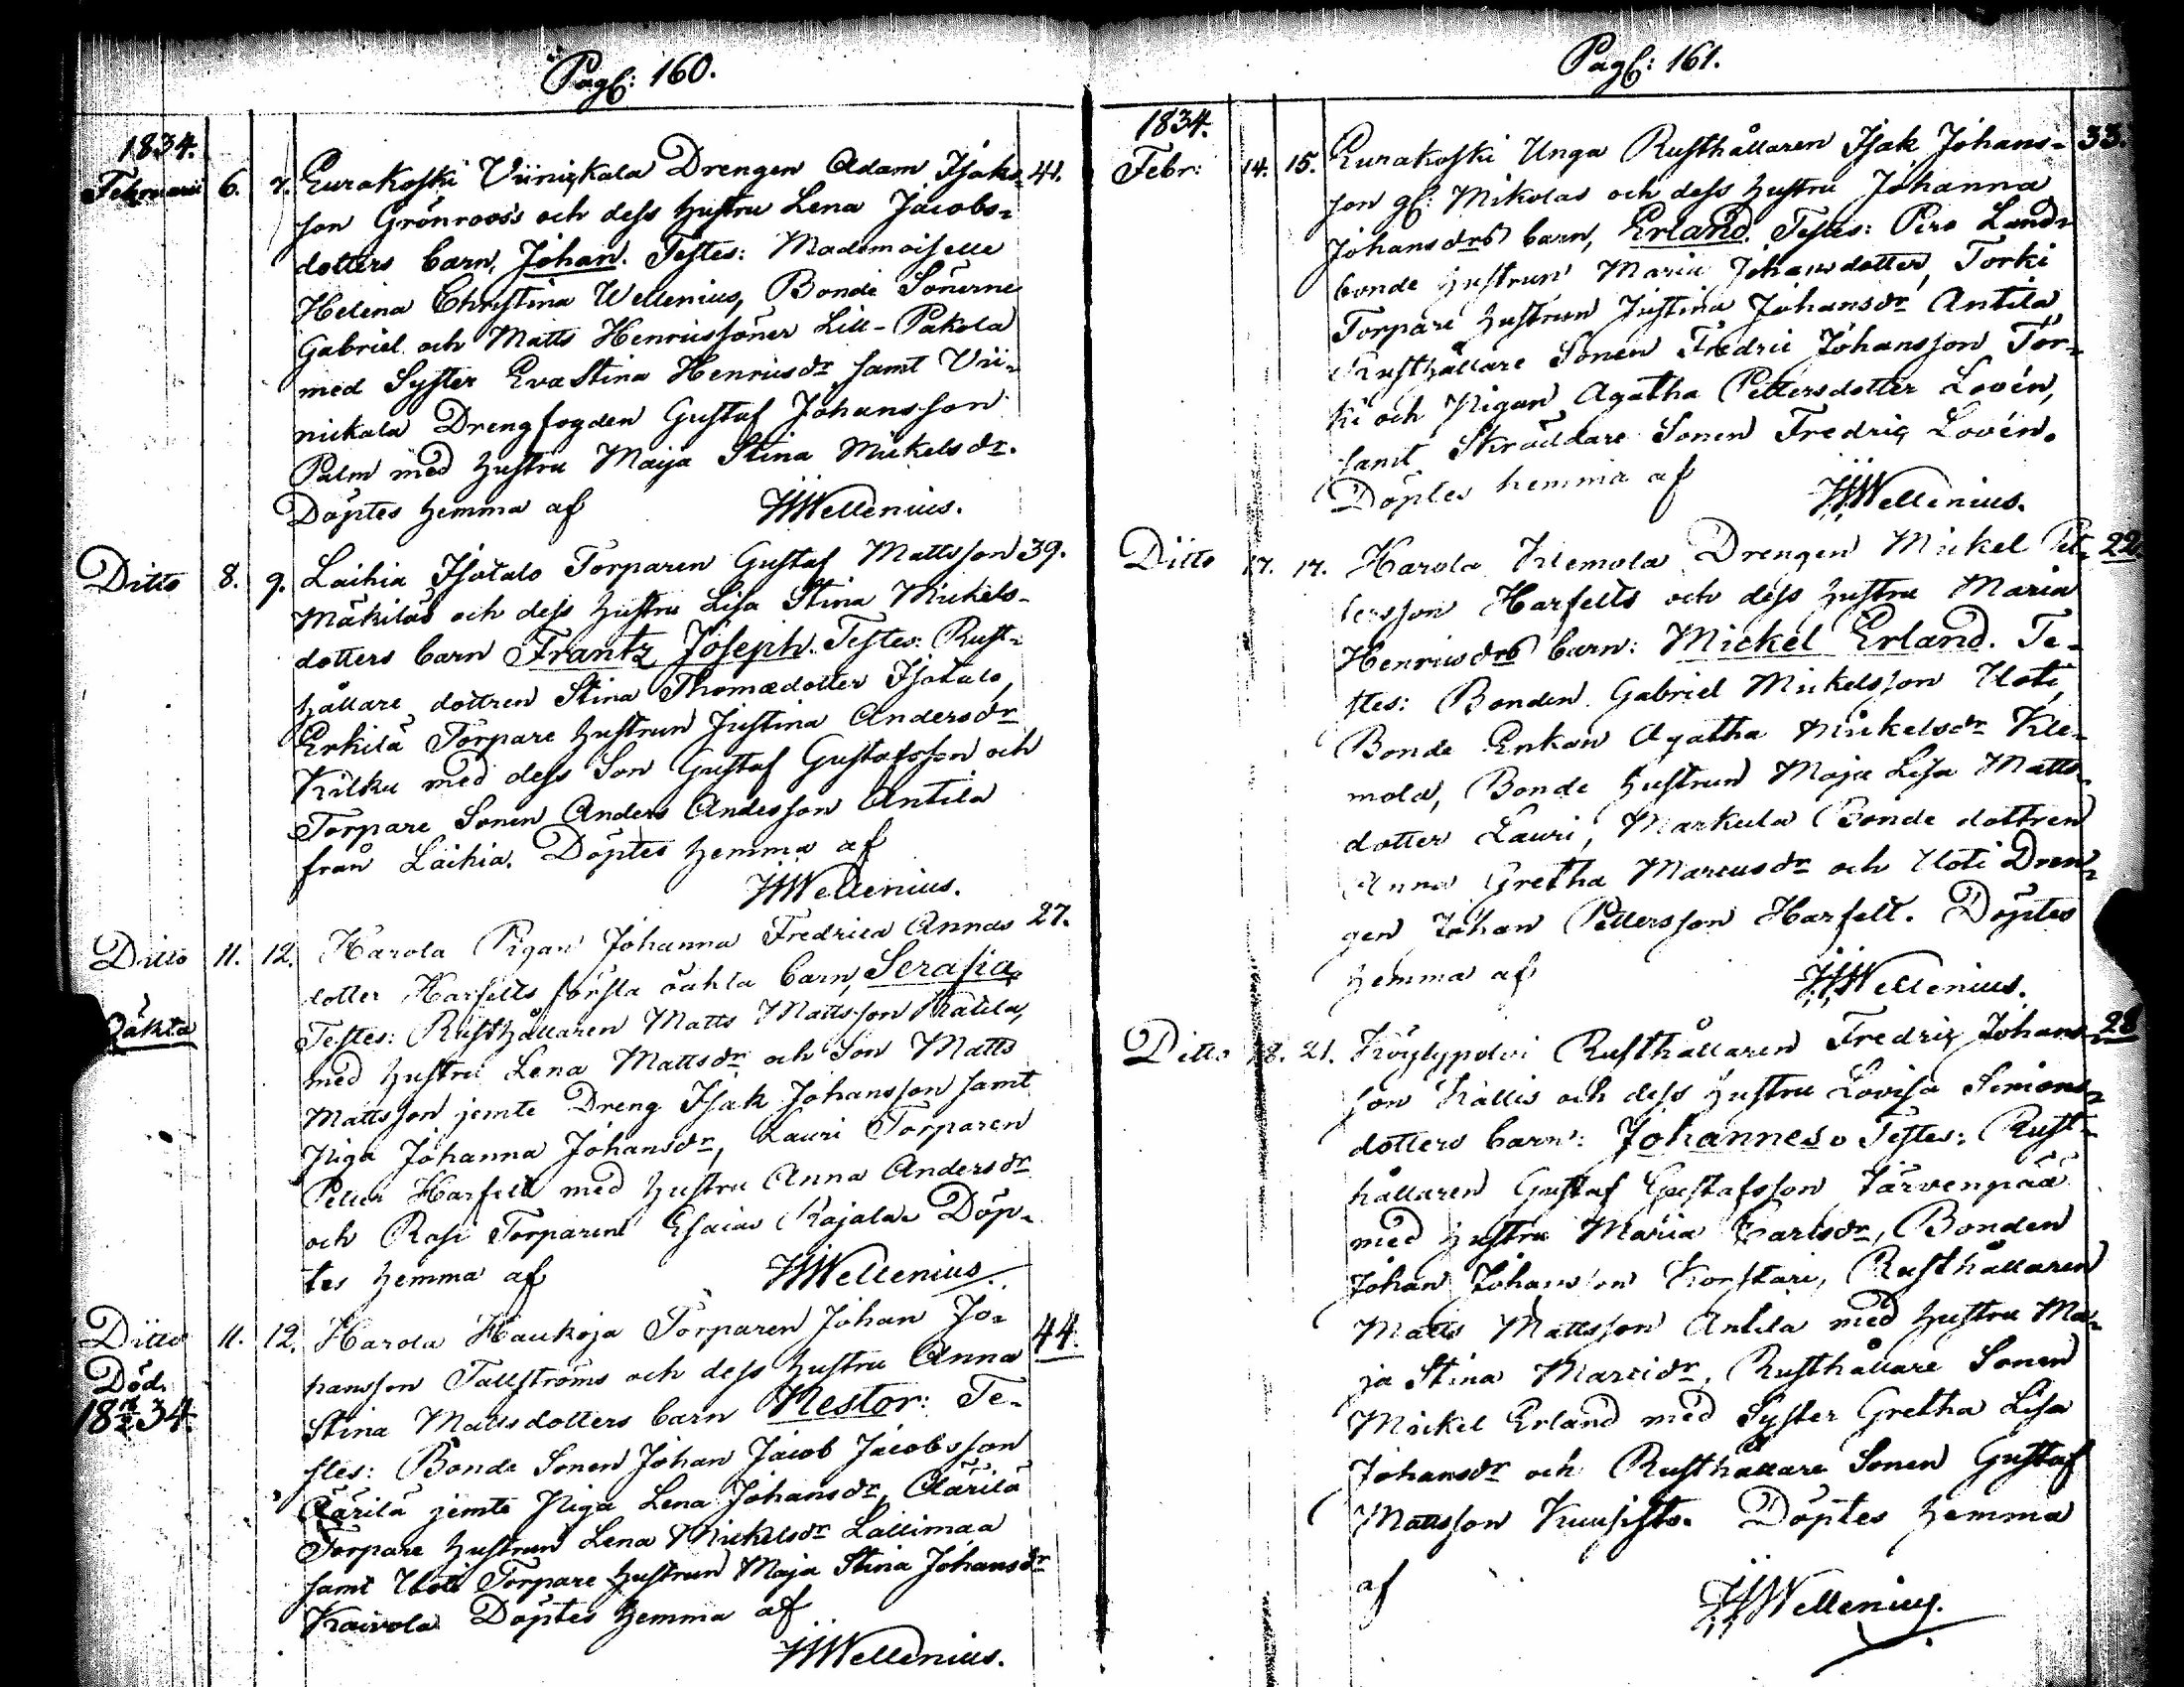 Pag: 160.
1834.
Februarii 6. 7. Eurakoski Viinikkala Drengen Adam Isaks- 41.
son Grönroos's och dess hustru Lena Jacobs-
dotters barn, Johan. Testes: Mademoiselle
Helena Christina Wellenius, Bonde Sönerne
Gabriel och Matts Henricssöner Lill-Pakola
med Syster Eva Stina Henricsdr samt Vii-
nickala Drengfogden Gustaf Johansson
Palm med hustru Maija Stina Mickelsdr.
Döptes hemma af HWellenius.
Ditto 8. 9. Laihia Isotalo Torparen Gustaf Mattsson 39.
Mäkiläs och dess hustru Lisa Stina Mickels-
dotters barn Frantz Joseph. Testes: Rust-
hållare dottren Stina Thomædotter Isotalo,
Erkilä Torpare hustrun Justina Andersdr
Kilku med dess Son Gustaf Gustafsson och
Torpare Sonen Anders Andersson Antila
från Laihia. Döptes hemma af
HWellenius.
Ditto 11. 12. Harola Pigan Johanna Fredrica Annas 27.
dotter Harfelts första oächta barn, Serafia.
Oäkta
Testes: Rusthållaren Matts Mattsson Katila,
med hustru Lena Mattsdr och Son Matts
Mattsson jemte Dreng Isak Johansson samt
Piga Johanna Johansdr, Lauri Torparen
Petter Harfelt med hustru Anna Andersdr
och Rosi Torparen Esaias Rajala. Döp-
tes hemma af HWellenius.
Ditto 11. 12. Harola Haukoja Torparen Johan Jo- 44.
Död.
hansson Tallströms och dess hustru Anna
Stina Mattsdotters barn Nestor: Te-
stes: Bonde Sonen Johan Jacob Jacobsson
Äärilä jemte Piga Lena Johansdr, Äärilä
Torpare hustrun Lena Mickelsdr Lallimaa
samt Uoti Torpare hustrun Maja Stina Johansdr
Kaivola Döptes hemma af
HWellenius.
Pag: 161.
1834.
Febr: 14. 15. Eurakoski Unga Rusthållaren Isak Johans- 33.
son gl: Mikolas och dess hustru Johanna
Johansdrs barn, Erland. Testes: Pero Land-
bonde hustrun Maria Johansdotter, Torki
Torpare hustrun Justina Johansdr Antila,
Rusthållare Sonen Fredric Johansson Tor-
ki och Pigan Agatha Pettersdotter Lovén,
samt Skräddare Sonen Fredric Lovén.
Döptes hemma af HWellenius.
Ditto 17. 17. Harola Klemola Drengen Mickel Pet- 22
tersson Harfelts och dess hustru Maria
Henricsdrs barn: Mickel Erland. Te-
stes: Bonden Gabriel Mickelsson Uoti,
Bonde Enkan Agatha Mickelsdr Kle-
mola, Bonde hustrun Maja Lisa Matts-
dotter Lauri, Markula Bonde dottren
Anna Gretha Marcusdr och Uoti Dren-
gen Johan Pettersson Harfelt. Döptes
hemma af HWellenius.
Ditto 18. 21. Köylypolvi Rusthållaren Fredric Johans- 28
son Kallis och dess hustru Lovisa Simons-
dotters barn: Johannes. Testes: Rust-
hållaren Gustaf Gustafsson Järvenpää
med hustru Maria Carlsdr, Bonden
Johan Johansson Korstari, Rusthållaren
Matts Mattsson Antila med hustru Ma-
ja Stina Marcidr, Rusthållare Sonen
Mickel Erland med Syster Gretha Lisa
Johansdr och Rusthållare Sonen Gustaf
Mattsson Kuusisto. Döptes hemma
af HWellenius.